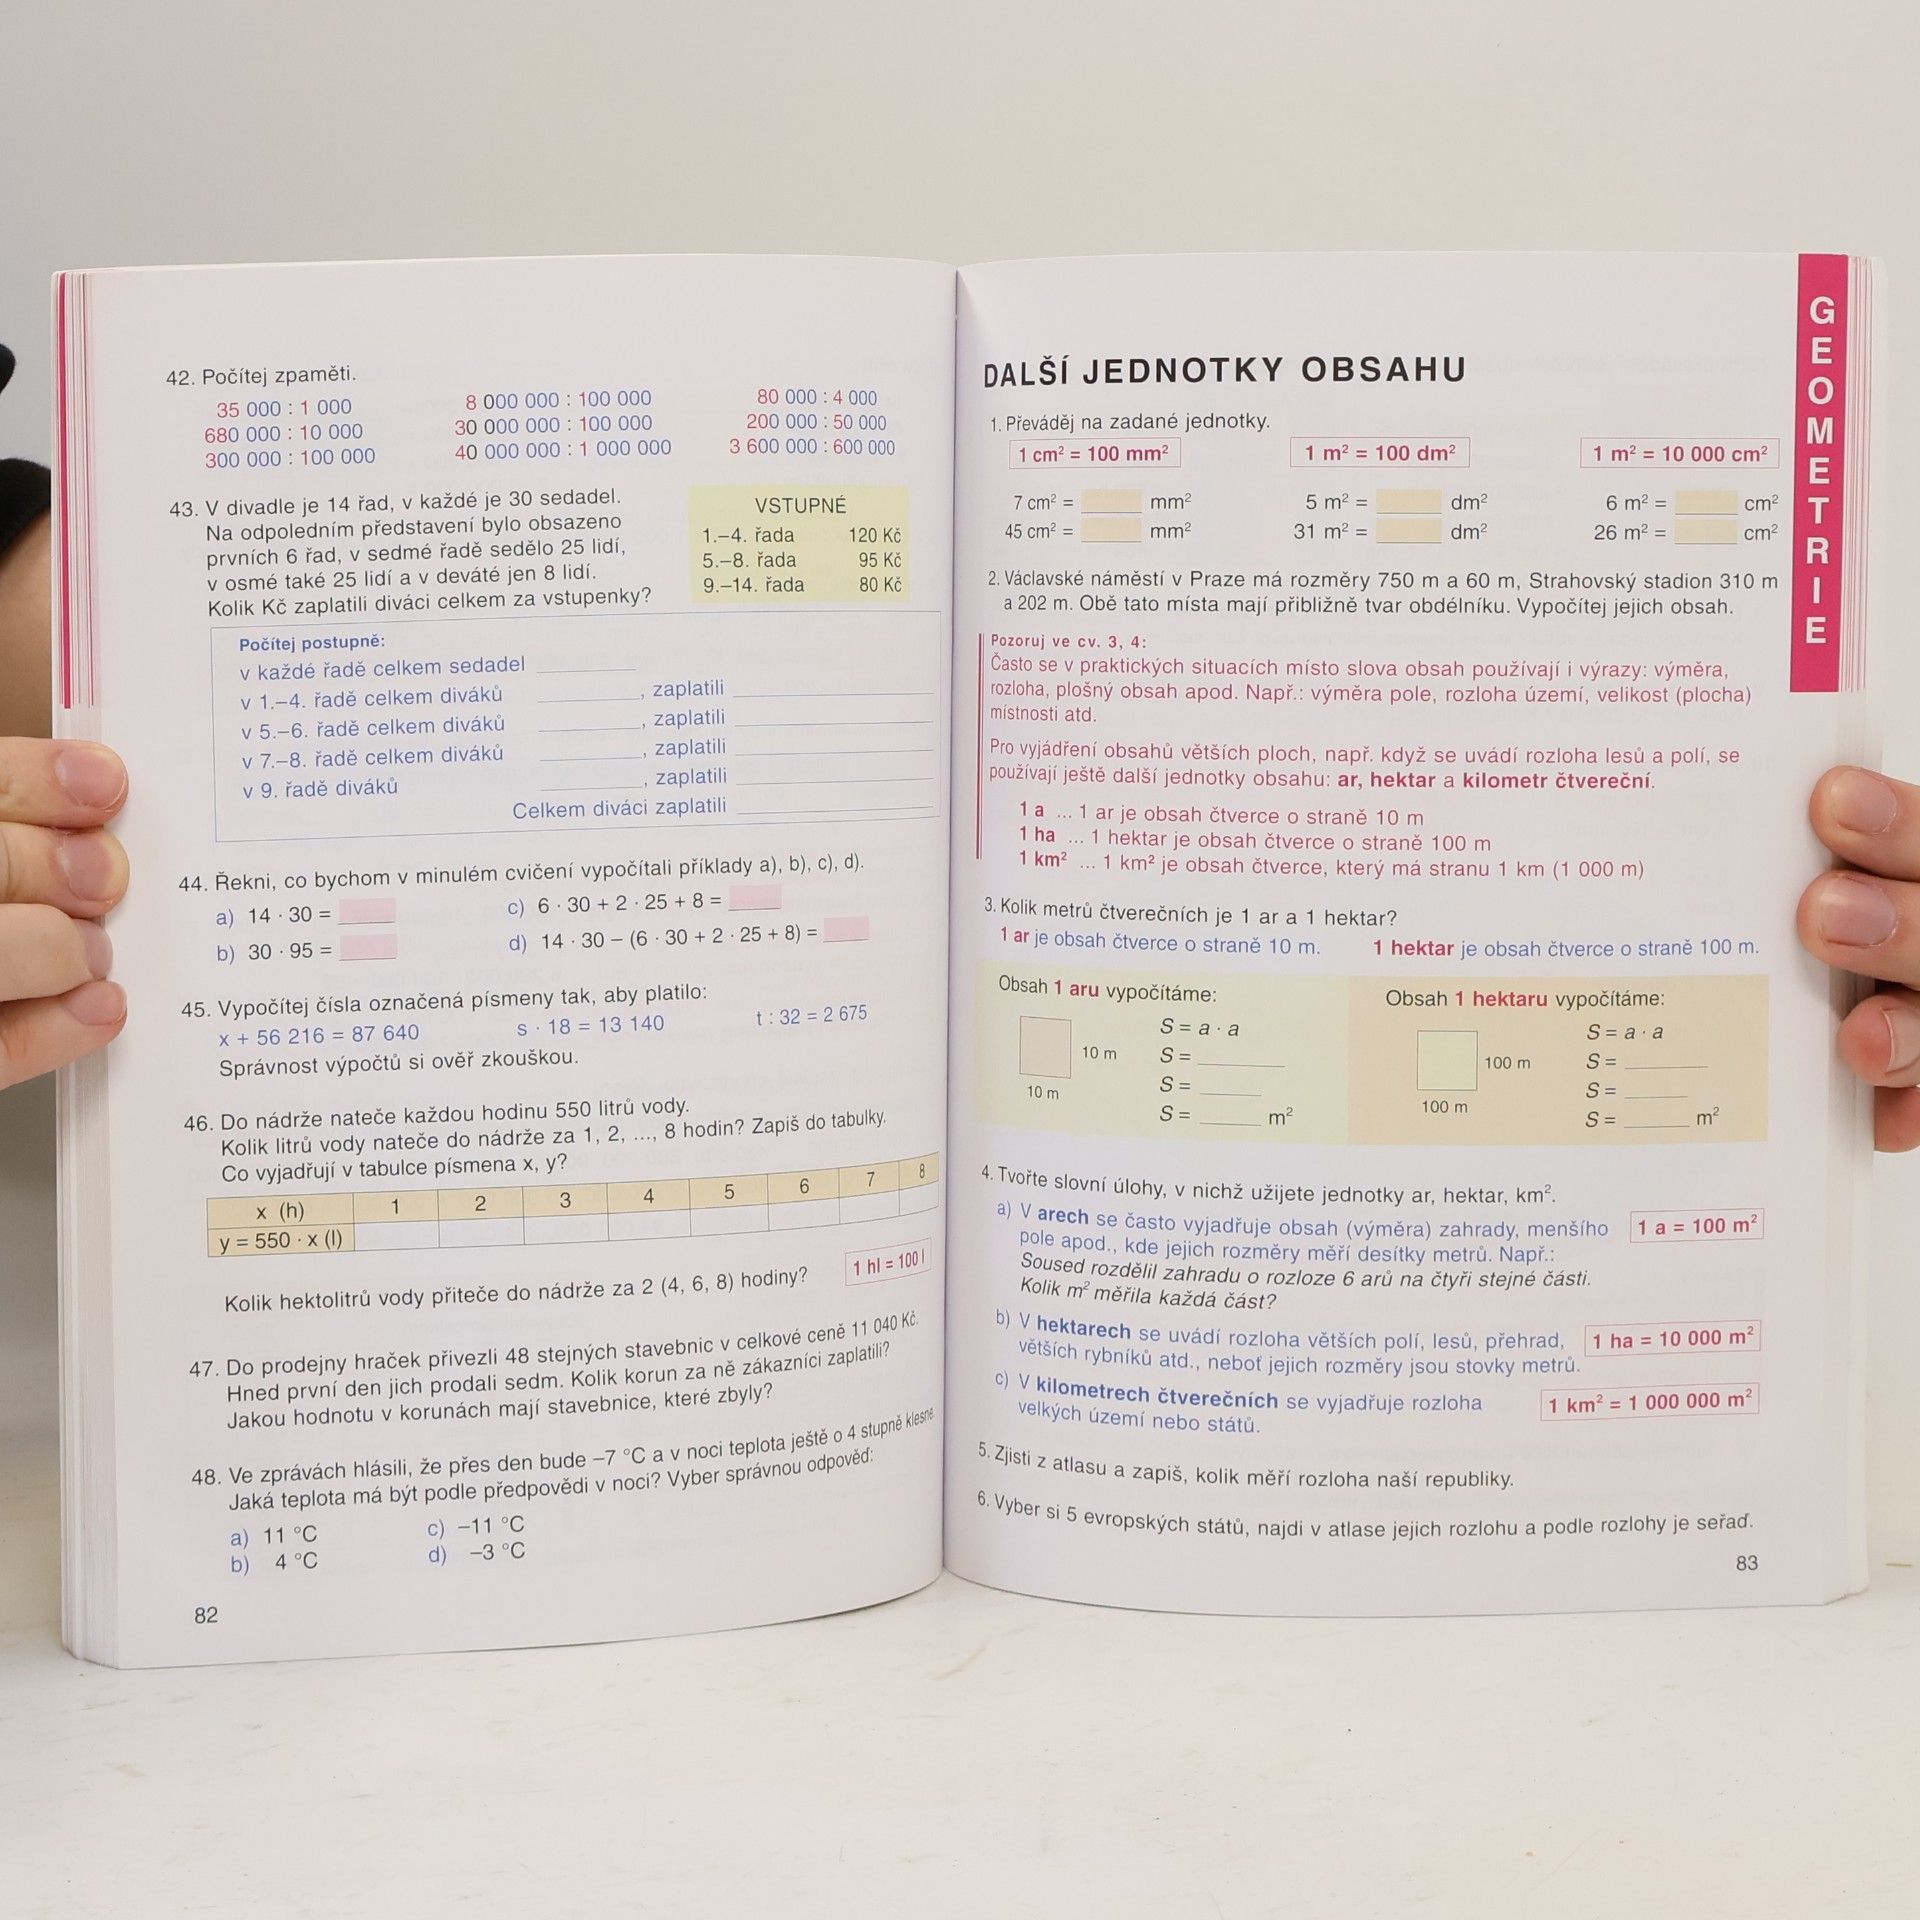 42. Počítej zpaměti.
35 000 : 1 000 8 000 000 : 100 000 80 000 : 4 000
680 000 : 10 000 30 000 000 : 100 000 200 000 : 50 000
300 000 : 100 000 40 000 000 : 1 000 000 3 600 000 : 600 000
43. V divadle je 14 řad, v každé je 30 sedadel.
Na odpoledním představení bylo obsazeno
prvních 6 řad, v sedmé řadě sedělo 25 lidí,
v osmé také 25 lidí a v deváté jen 8 lidí.
Kolik Kč zaplatili diváci celkem za vstupenky?
VSTUPNÉ
1.–4. řada 120 Kč
5.–8. řada 95 Kč
9.–14. řada 80 Kč
Počítej postupně:
v každé řadě celkem sedadel
v 1.–4. řadě celkem diváků , zaplatili
v 5.–6. řadě celkem diváků , zaplatili
v 7.–8. řadě celkem diváků , zaplatili
v 9. řadě diváků , zaplatili
Celkem diváci zaplatili
44. Řekni, co bychom v minulém cvičení vypočítali příklady a), b), c), d).
a) 14 · 30 = c) 6 · 30 + 2 · 25 + 8 =
b) 30 · 95 = d) 14 · 30 – (6 · 30 + 2 · 25 + 8) =
45. Vypočítej čísla označená písmeny tak, aby platilo:
x + 56 216 = 87 640 s · 18 = 13 140 t : 32 = 2 675
Správnost výpočtů si ověř zkouškou.
46. Do nádrže nateče každou hodinu 550 litrů vody.
Kolik litrů vody nateče do nádrže za 1, 2, ..., 8 hodin? Zapiš do tabulky.
Co vyjadřují v tabulce písmena x, y?
x (h) 1 2 3 4 5 6 7 8
y = 550 · x (l)
Kolik hektolitrů vody přiteče do nádrže za 2 (4, 6, 8) hodiny? 1 hl = 100 l
47. Do prodejny hraček přivezli 48 stejných stavebnic v celkové ceně 11 040 Kč.
Hned první den jich prodali sedm. Kolik korun za ně zákazníci zaplatili?
Jakou hodnotu v korunách mají stavebnice, které zbyly?
48. Ve zprávách hlásili, že přes den bude –7 °C a v noci teplota ještě o 4 stupně klesne.
Jaká teplota má být podle předpovědi v noci? Vyber správnou odpověď:
a) 11 °C c) –11 °C
b) 4 °C d) –3 °C
82
GEOMETRIE
DALŠÍ JEDNOTKY OBSAHU
1. Převáděj na zadané jednotky.
1 cm² = 100 mm² 1 m² = 100 dm² 1 m² = 10 000 cm²
7 cm² = mm² 5 m² = dm² 6 m² = cm²
45 cm² = mm² 31 m² = dm² 26 m² = cm²
2. Václavské náměstí v Praze má rozměry 750 m a 60 m, Strahovský stadion 310 m
a 202 m. Obě tato místa mají přibližně tvar obdélníku. Vypočítej jejich obsah.
Pozoruj ve cv. 3, 4:
Často se v praktických situacích místo slova obsah používají i výrazy: výměra,
rozloha, plošný obsah apod. Např.: výměra pole, rozloha území, velikost (plocha)
místnosti atd.
Pro vyjádření obsahů větších ploch, např. když se uvádí rozloha lesů a polí, se
používají ještě další jednotky obsahu: ar, hektar a kilometr čtvereční.
1 a ... 1 ar je obsah čtverce o straně 10 m
1 ha ... 1 hektar je obsah čtverce o straně 100 m
1 km² ... 1 km² je obsah čtverce, který má stranu 1 km (1 000 m)
3. Kolik metrů čtverečních je 1 ar a 1 hektar?
1 ar je obsah čtverce o straně 10 m. 1 hektar je obsah čtverce o straně 100 m.
Obsah 1 aru vypočítáme: Obsah 1 hektaru vypočítáme:
S = a · a S = a · a
10 m S = 100 m S =
10 m S = 100 m S =
S = m² S = m²
4. Tvořte slovní úlohy, v nichž užijete jednotky ar, hektar, km².
a) V arech se často vyjadřuje obsah (výměra) zahrady, menšího 1 a = 100 m²
pole apod., kde jejich rozměry měří desítky metrů. Např.:
Soused rozdělil zahradu o rozloze 6 arů na čtyři stejné části.
Kolik m² měřila každá část?
b) V hektarech se uvádí rozloha větších polí, lesů, přehrad, 1 ha = 10 000 m²
větších rybníků atd., neboť jejich rozměry jsou stovky metrů.
c) V kilometrech čtverečních se vyjadřuje rozloha 1 km² = 1 000 000 m²
velkých území nebo států.
5. Zjisti z atlasu a zapiš, kolik měří rozloha naší republiky.
6. Vyber si 5 evropských států, najdi v atlase jejich rozlohu a podle rozlohy je seřaď.
83